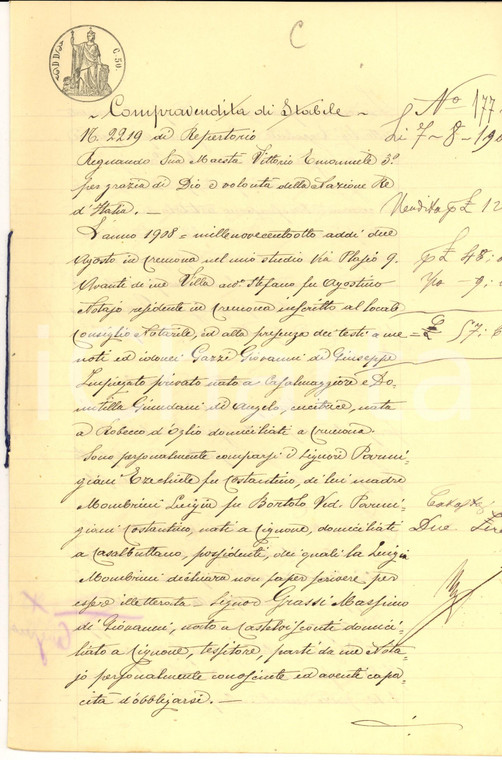 C. 50
C
Compravendita di Stabile
N. 2219 di Repertorio
Regnando Sua Maestà Vittorio Emanuele 3°
per grazia di Dio e volontà della Nazione Re
d'Italia. —
L'anno 1908 = millenovecentotto addì due
Agosto in Cremona nel mio studio Via Plasio 9.
Avanti di me Villa avv. Stefano fu Agostino
Notajo residente in Cremona inscritto al locale
Consiglio Notarile, ed alla presenza dei testi a me
noti ed idonei Gazzi Giovanni di Giuseppe
Impiegato privato nato a Casalmaggiore e Do-
mitilla Giundani di Angelo, cucitrice, nata
a Robecco d'Oglio domiciliati a Cremona
Sono personalmente comparsi i Signori Parmi-
giani Ezechiele fu Costantino, di lui madre
Mombrini Luigia fu Bortolo Ved. Parmi-
giani Costantino, nati a Cignone, domiciliati
a Casalbuttano, possidenti, dei quali la Luigia
Mombrini dichiara non saper scrivere per
essere illetterata = Signor Grassi Massimo
di Giovanni, nato a Castelvisconti domici-
liato a Cignone, tessitore, parti da me Nota-
jo personalmente conosciute ed aventi capa-
cità d'obbligarsi. —
No 177
Li 7-8-190
Vendita p £ 12
p £ 48:
9:
£ 57: 6
Due Lire